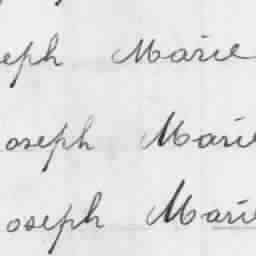 eph Marie
oseph Marie
oseph Marie